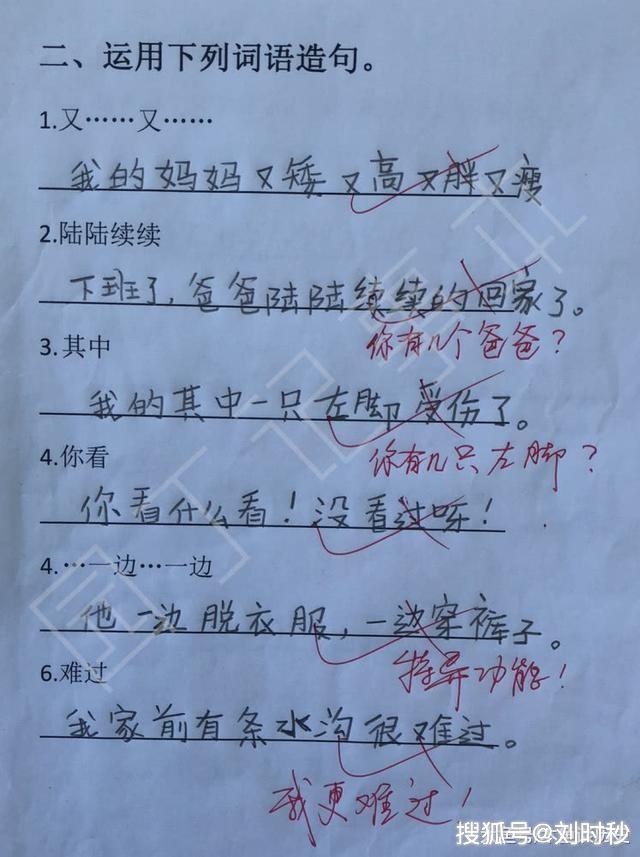 二、运用下列词语造句。
1.又……又……
我的妈妈又矮又高又胖又瘦
2.陆陆续续
下班了，爸爸陆陆续续的回家了。
你有几个爸爸？
3.其中
我的其中一只左脚受伤了。
你有几只左脚？
4.你看
你看什么看！没看过呀！
4.…一边…一边
他一边脱衣服，一边穿裤子。
特异功能！
6.难过
我家前有条水沟很难过。
我更难过！
搜狐号@刘时秒